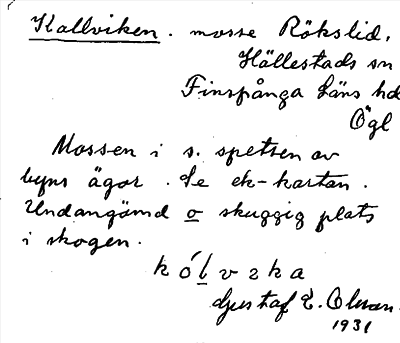 Kallviken. mosse Rökslid,
Hällestads sn
Finspånga Läns hd
Ögl
Mossen i s. spetsen av
byns ägor. Se ek-kartan.
Undangömd o skuggig plats
i skogen.
Gustaf E.
1931